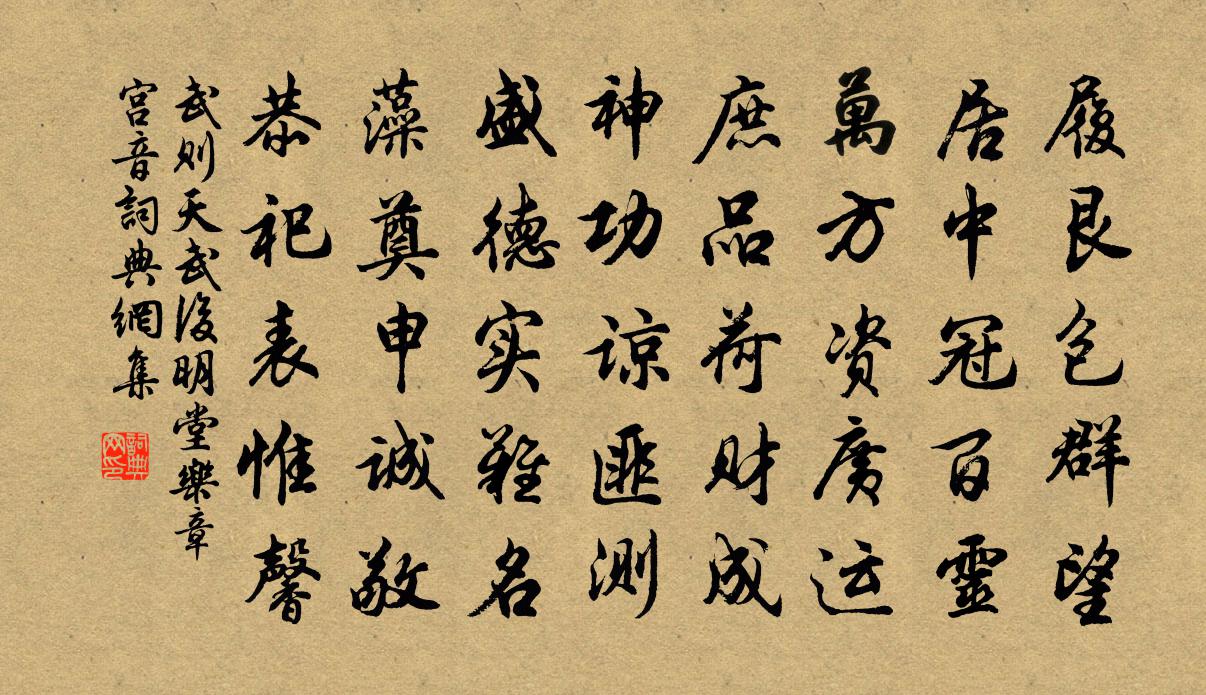 履艮包群望
居中冠百靈
萬方资廣运
庶品荷财成
神功谅匪测
盛德实難名
藻奠申诚敬
恭祀表惟馨
武则天武後明堂樂章
宫音詞典網集
詞典
网